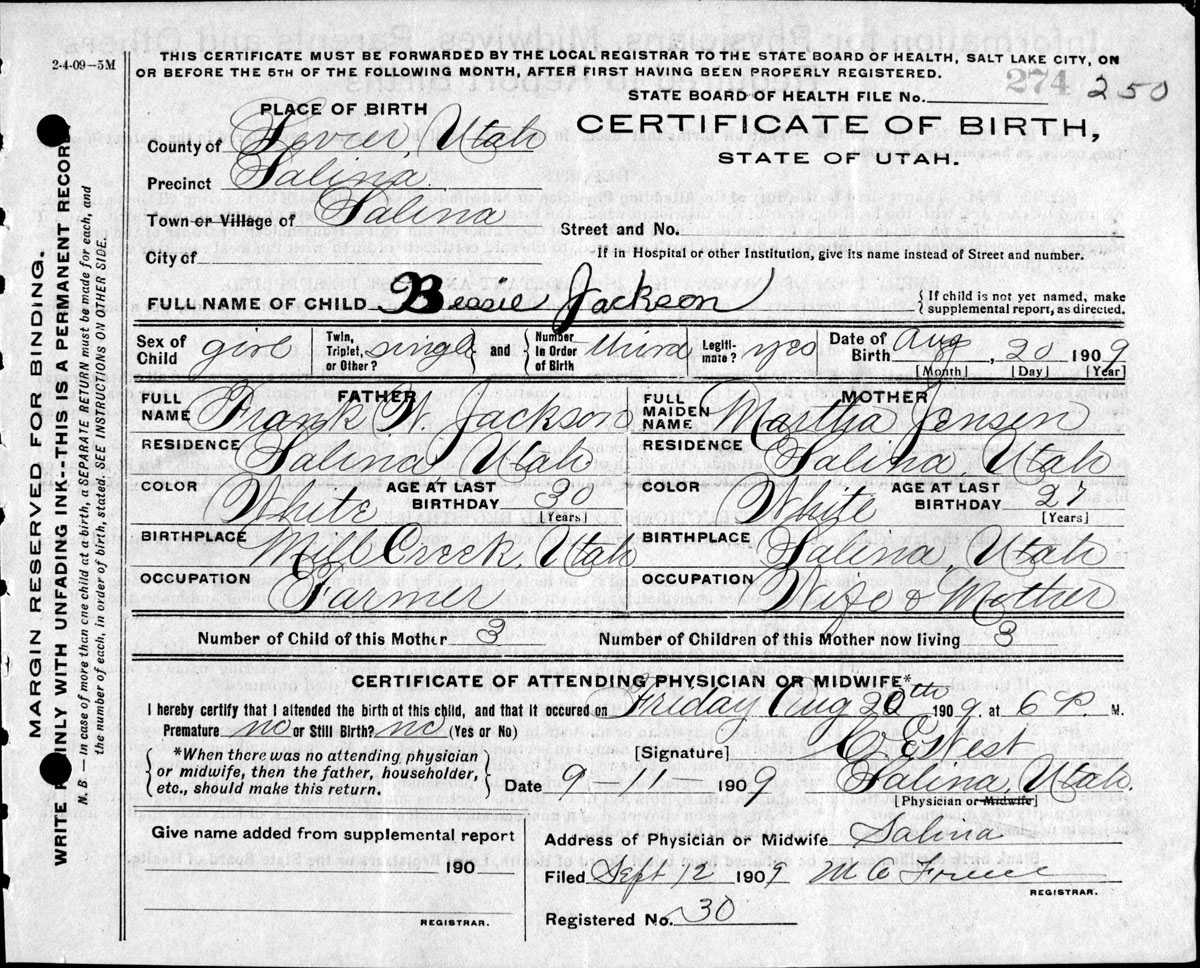 2-4-09--5M
THIS CERTIFICATE MUST BE FORWARDED BY THE LOCAL REGISTRAR TO THE STATE BOARD OF HEALTH, SALT LAKE CITY, ON
OR BEFORE THE 5TH OF THE FOLLOWING MONTH, AFTER FIRST HAVING BEEN PROPERLY REGISTERED.
274
STATE BOARD OF HEALTH FILE No. 250
PLACE OF BIRTH
CERTIFICATE OF BIRTH,
STATE OF UTAH.
County of Sevier, Utah
Precinct Salina
Town or Village of Salina
Street and No.
City of
If in Hospital or other Institution, give its name instead of Street and number.
FULL NAME OF CHILD Bessie Jackson
{If child is not yet named, make supplemental report, as directed.
Sex of Child girl Twin, Triplet, or Other? single and Number in Order of Birth third Legiti-mate? yes Date of Birth Aug, 20 1909
[Month] [Day] [Year]
FATHER MOTHER
FULL NAME Frank W. Jackson FULL MAIDEN NAME Martha Jensen
RESIDENCE Salina, Utah RESIDENCE Salina, Utah
COLOR White AGE AT LAST BIRTHDAY 30 [Years] COLOR White AGE AT LAST BIRTHDAY 27 [Years]
BIRTHPLACE Mill Creek, Utah BIRTHPLACE Salina, Utah
OCCUPATION Farmer OCCUPATION Wife & Mother
Number of Child of this Mother 3 Number of Children of this Mother now living 3
CERTIFICATE OF ATTENDING PHYSICIAN OR MIDWIFE*
I hereby certify that I attended the birth of this child, and that it occured on Friday Aug 20th 1909. at 6 P. M.
Premature no or Still Birth? no (Yes or No)
[Signature] C. E. West
*When there was no attending physician
or midwife, then the father, householder,
etc., should make this return.
Date 9-11-1909 Salina, Utah.
[Physician or Midwife]
Give name added from supplemental report
190
REGISTRAR.
Address of Physician or Midwife Salina
Filed Sept 12 1909
REGISTRAR.
Registered No. 30
MARGIN RESERVED FOR BINDING.
WRITE PLAINLY WITH UNFADING INK--THIS IS A PERMANENT RECORD
N. B.—In case of more than one child at a birth, a SEPARATE RETURN must be made for each, and
the number of each, in order of birth, stated. SEE INSTRUCTIONS ON OTHER SIDE.